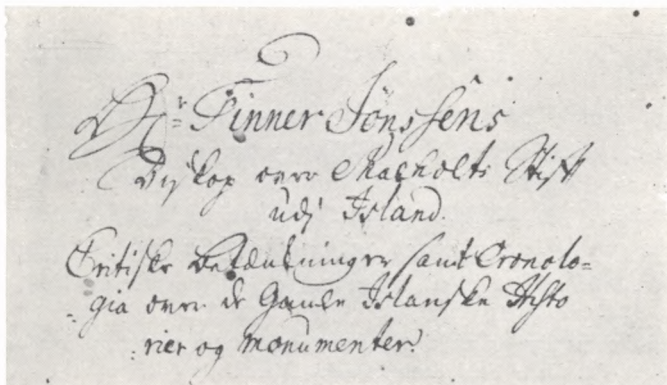 Dr. Finner Jönssens
Biskop over Skalholts Stift
udj Island.
Critiske betænkninger samt Cronolo=
gia over de Gamle Islanske Histo
rier og monumenter.